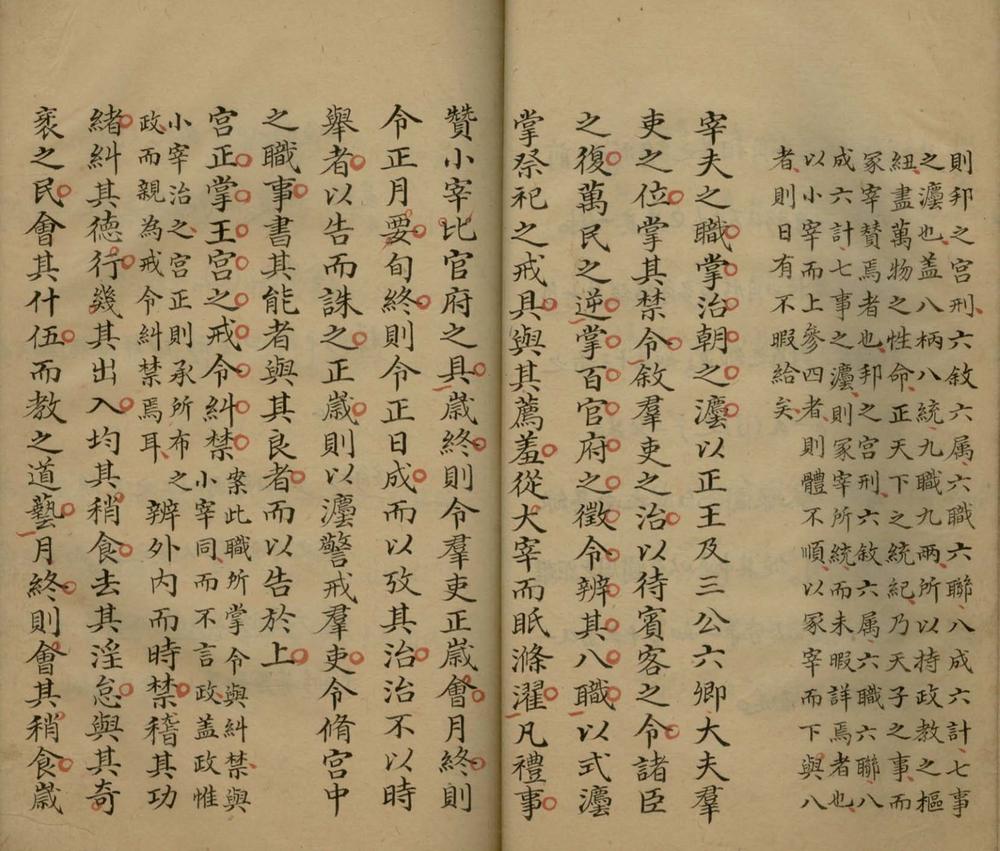 則邦之宫刑六敘六属六職六聯八成六計七事
之灋也盖八柄八統九職九兩所以持政教之樞
紐盡萬物之性命正天下之統紀乃天子之事而
冡宰賛焉者也邦之宫刑六敘六属六職六聯八
成六計七事之灋則冡宰所統而未暇詳焉者也
以小宰而上參四者則體不順以冡宰而下與八
者則日有不暇給矣
宰夫之職掌治朝之灋以正王及三公六卿大夫羣
吏之位掌其禁令敘羣吏之治以待賓客之令諸臣
之復萬民之逆掌百官府之徵令辨其八職以式灋
掌祭祀之戒具與其薦羞從大宰而眡滌濯凡禮事
贊小宰比官府之具歲終則令羣吏正歲會月終則
令正月要旬終則令正日成而以攷其治治不以時
舉者以告而誅之正歲則以灋警戒羣吏令脩宫中
之職事書其能者與其良者而以告於上
宫正掌王宫之戒令糾禁案此職所掌令與糾禁與
小宰同而不言政盖政惟
小宰治之宫正則承所布之
政而親為戒令糾禁焉耳辨外内而時禁稽其功
緒糾其德行幾其出入均其稍食去其淫怠與其奇
衺之民會其什伍而教之道藝月終則會其稍食歲